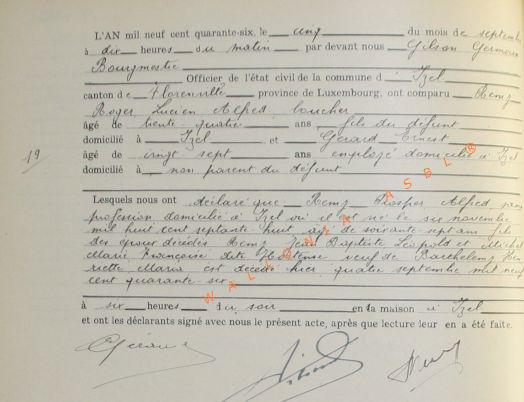 19
L'AN mil neuf cent quarante-six, le cinq du mois de septemb
à dix heures du matin par devant nous Gilson Germain
Bourgmestre
Officier de l'état civil de la commune d'Izel
canton de Florenville province de Luxembourg, ont comparu Remy
Roger Lucien Alfred boucher
âgé de trente quatre ans fils du défunt
domicilié à Izel et Gérard Ernest
âgé de vingt sept ans employé domicilié à Izel
domicilié à non parent du défunt
Lesquels nous ont déclaré que Remy Prosper Alfred sans
profession domicilié à Izel où il est né le six novembre
mil huit cent septante huit âgé de soixante sept ans fils
des époux décédés Remy Jean Baptiste Léopold et Michel
Marie Françoise dite Hortense veuf de Barthelemy
Maria est décédé hier quatre septembre mil neuf
cent quarante six
à six heures du soir en la maison à Izel
et ont les déclarants signé avec nous le présent acte, après que lecture leur en a été faite.
WALLONIA ASBL